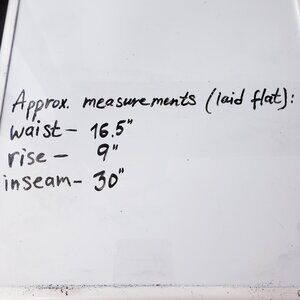 Approx. measurements (laid flat):
waist - 16.5"
rise - 9"
inseam - 30"